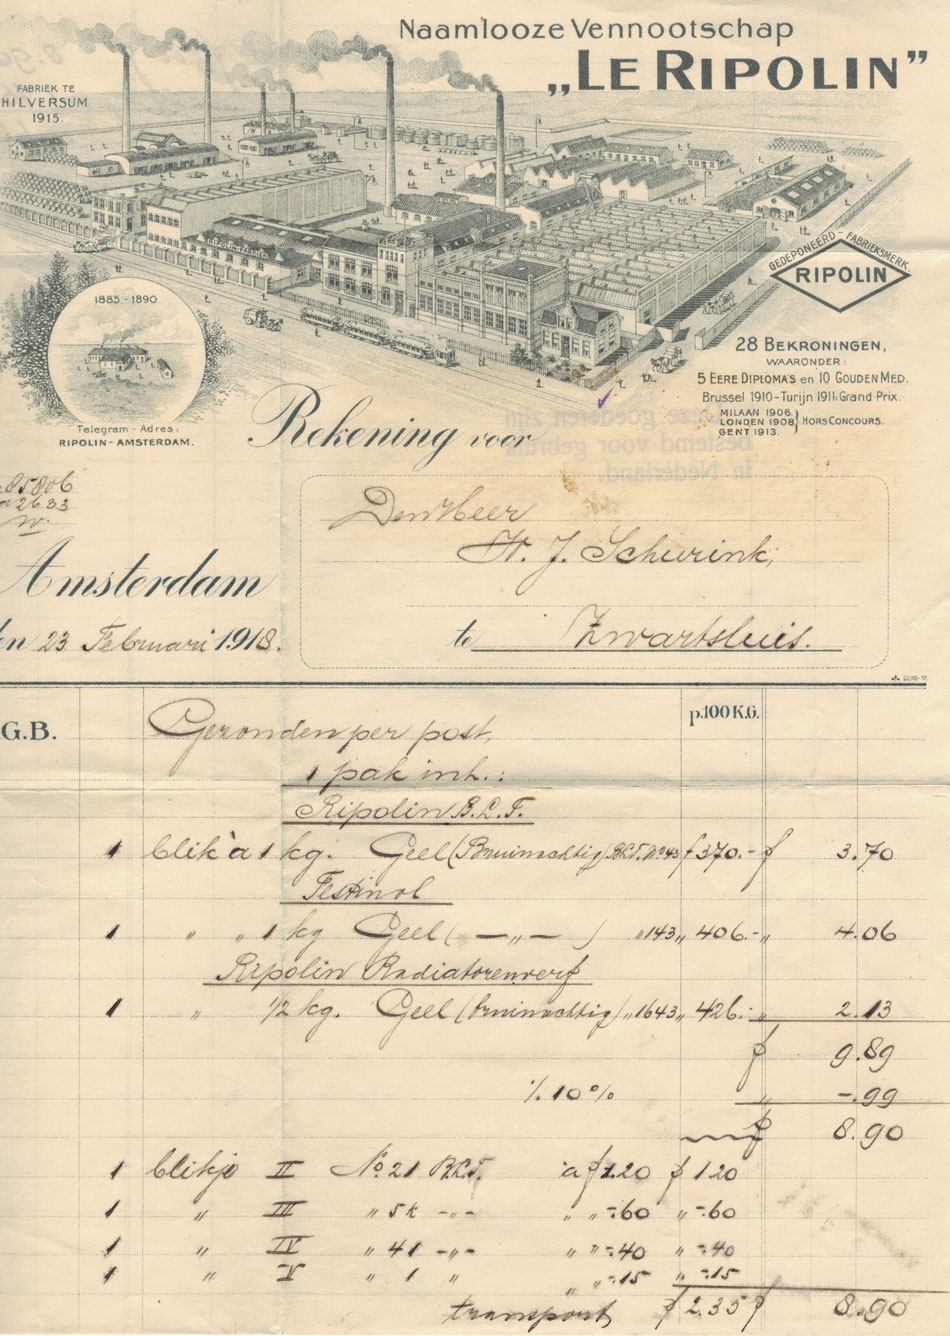 Naamlooze Vennootschap
„LE RIPOLIN”
FABRIEK TE
HILVERSUM
1915.
GEDEPONEERD - FABRIEKSMERK
RIPOLIN
1885 - 1890
28 BEKRONINGEN,
WAARONDER:
5 EERE DIPLOMA'S en 10 GOUDEN MED.
Brussel 1910 - Turijn 1911: Grand Prix.
MILAAN 1906.
LONDEN 1908. } HORS CONCOURS.
GENT 1913.
Telegram - Adres:
RIPOLIN-AMSTERDAM.
Rekening voor
Deze goederen zijn
bestemd voor gebruik
in Nederland.
85806
2633
Den Heer
H. J. Scheurink,
Amsterdam
en 23 Februari 1918.
te Zwartsluis.
G.B.
p. 100 K.G.
Gezonden per post,
1 pak inh.:
Ripolin B.L.F.
1 blik à 1 kg. Geel (Bruinachtig) B.L.F. No 43 f 370.- f 3.70
Festinol
1 „ „ 1 kg Geel ( — „ — ) „ 143 „ 406.- „ 4.06
Ripolin Radiatorenverf
1 „ 1/2 kg. Geel (bruinachtig) „ 1643 „ 426.- „ 2.13
f 9.89
% 10 % „ -.99
f 8.90
1 blikje II No 21 B.L.F. à f 1.20 f 1.20
1 „ III „ 5k -„- „ „ -.60 „ -.60
1 „ IV „ 41 -„- „ „ -.40 „ -.40
1 „ V „ 1 „ „ „ -.15 „ -.15
transport f 2.35 f 8.90